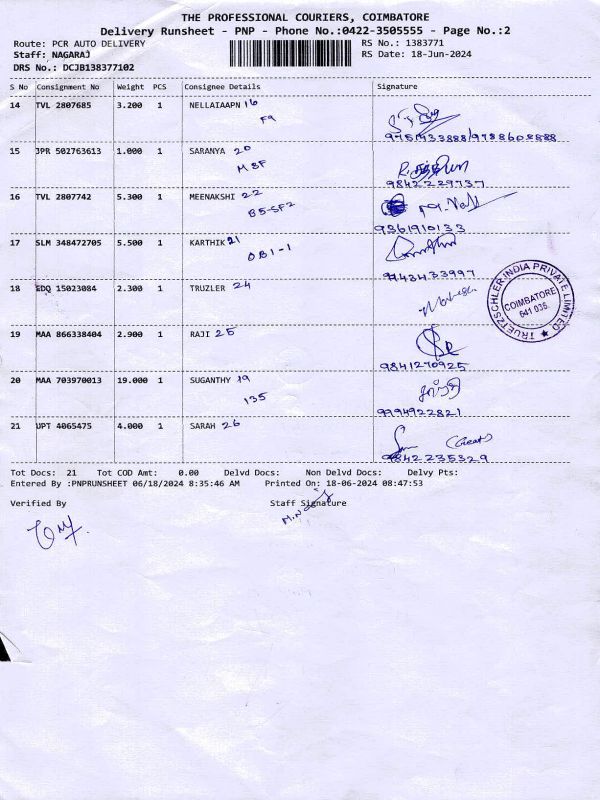 THE PROFESSIONAL COURIERS, COIMBATORE
Delivery Runsheet - PNP - Phone No.:0422-3505555 - Page No.:2
Route: PCR AUTO DELIVERY RS No.: 1383771
Staff: NAGARAJ RS Date: 18-Jun-2024
DRS No.: DCJB138377102
S No Consignment No Weight PCS Consignee Details Signature
14 TVL 2807685 3.200 1 NELLAIAAPN 16
F9
15 JPR 502763613 1.000 1 SARANYA 20
M8F
9842229737
16 TVL 2807742 5.300 1 MEENAKSHI 22
B5-SF2
9361910133
17 SLM 348472705 5.500 1 KARTHIK 21
OB1-1
9943433997
18 EDQ 15023084 2.300 1 TRUZLER 24
TRUETZSCHLER INDIA PRIVATE LIMITED
COIMBATORE
641 035.
19 MAA 866338404 2.900 1 RAJI 25
9841270925
20 MAA 703970013 19.000 1 SUGANTHY 19
135
9994922821
21 UPT 4065475 4.000 1 SARAH 26
9842235329
Tot Docs: 21 Tot COD Amt: 0.00 Delvd Docs: Non Delvd Docs: Delvy Pts:
Entered By :PNPRUNSHEET 06/18/2024 8:35:46 AM Printed On: 18-06-2024 08:47:53
Verified By Staff Signature